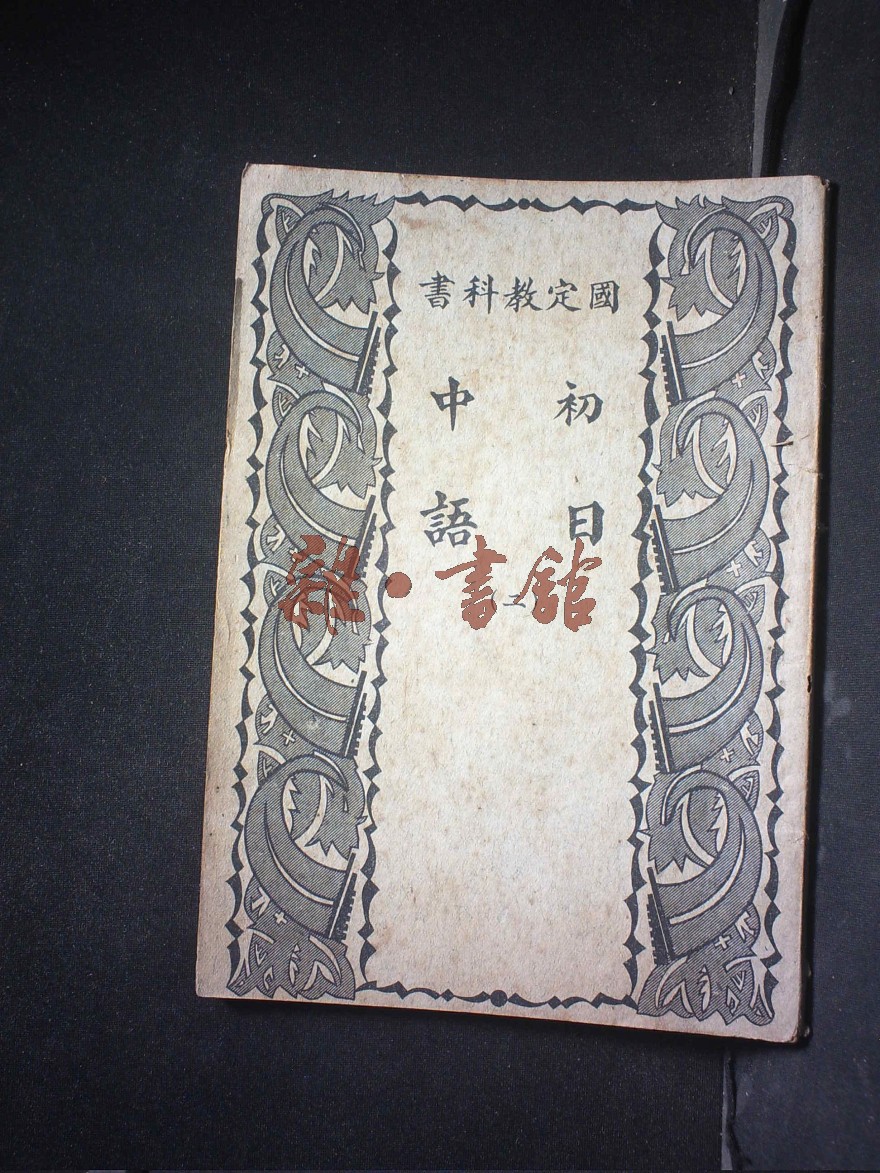 國定教科書
初中
日語
雜·書館